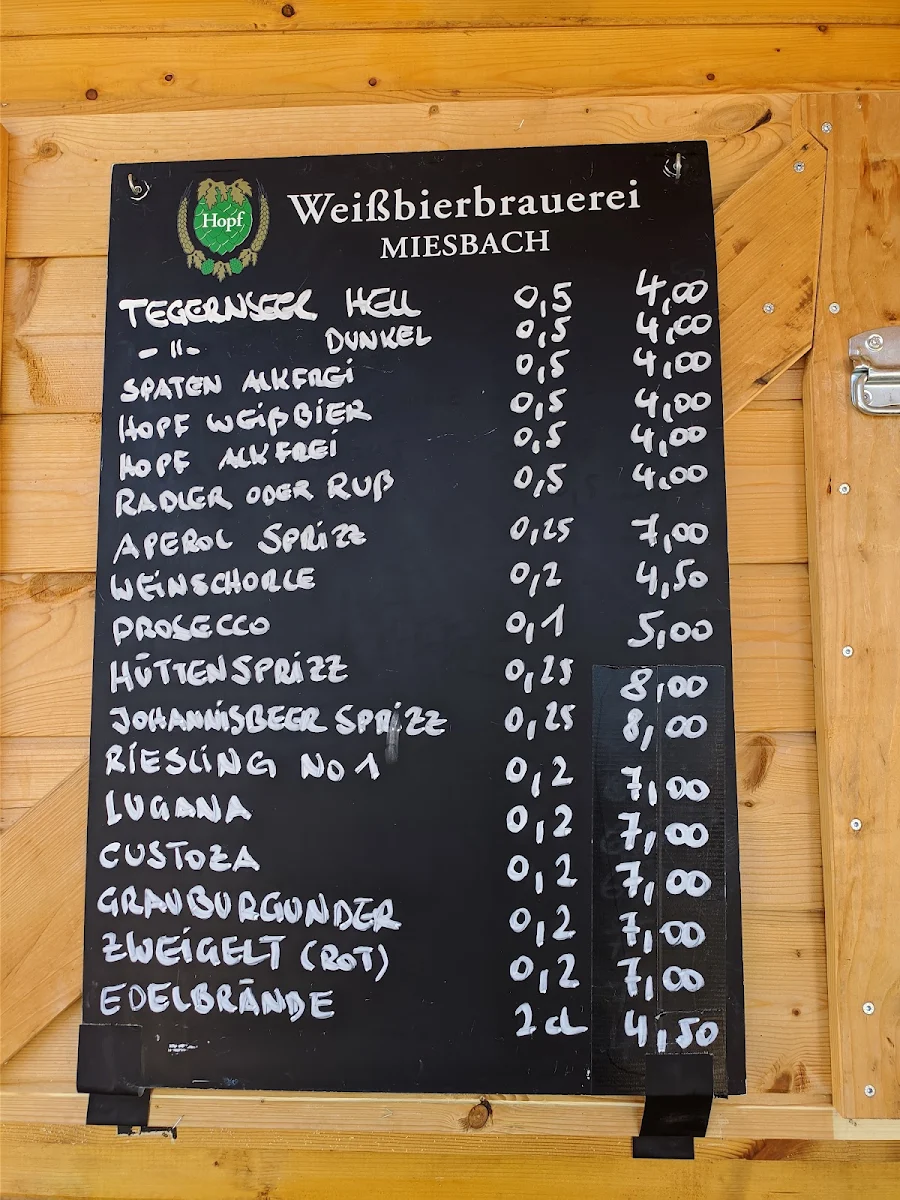 Hopf
Weißbierbrauerei
MIESBACH
TEGERNSEER HELL 0,5 4,00
-"- DUNKEL 0,5 4,00
SPATEN ALKFREI 0,5 4,00
HOPF WEIßBIER 0,5 4,00
HOPF ALKFREI 0,5 4,00
RADLER ODER RUß 0,5 4,00
APEROL SPRIZZ 0,25 7,00
WEINSCHORLE 0,2 4,50
PROSECCO 0,1 5,00
HÜTTENSPRIZZ 0,25 8,00
JOHANNISBEER SPRIZZ 0,25 8,00
RIESLING NO 1 0,2 7,00
LUGANA 0,2 7,00
CUSTOZA 0,2 7,00
GRAUBURGUNDER 0,2 7,00
ZWEIGELT (ROT) 0,2 7,00
EDELBRÄNDE 2cl 4,50